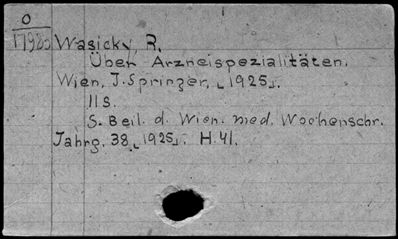 O
17985 Wasicky, R.
Über Arzneispezialitäten.
Wien, J. Springer, ⌞1925⌟.
11 S.
S. Beil. d. Wien. med. Wochenschr.
Jahrg. 38, ⌞1925⌟. H. 41.